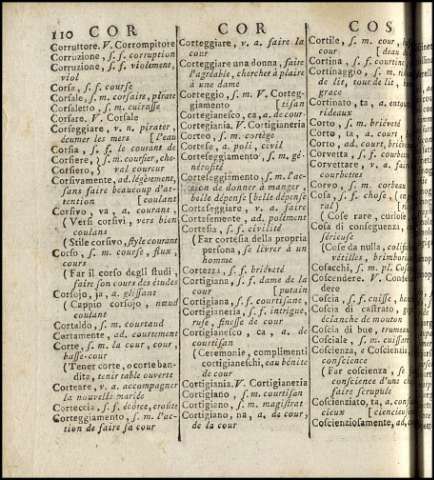 110 COR COR COS
Corruttore. V. Corrompitore
Corruzione, s. f. corruption
Corruzione, s. f. violement,
viol
Corsa, s. f. course
Corsale, s. m. corsaire, pirate
Corsaletto, s. m. cuirasse
Corsare. V. Corsale
Corseggiare, v. n. pirater,
écumer les mers [l'eau
Corsía, s. f. le courant de
Corsiere, } s. m. coursier, che-
Corsiero, } val coureur
Corsivamente, ad. légérement,
sans faire beaucoup d'at-
tention [coulant
Corsivo, va, a. courant,
(Versi corsivi, vers bien
coulants
(Stile corsivo, style courant
Corso, s. m. course, flux
cours
(Far il corso degli studi,
faire son cours des études
Corsojo, ja, a. glissant
(Cappio corsojo, nœud
coulant
Cortaldo, s. m. courtaud
Cortamente, ad. courtement
Corte, s. m. la cour, cour,
basse-cour
(Tener corte, o corte ban-
dita, tenir table ouverte
Corteare, v. a. accompagner
la nouvelle mariée
Corteccia, s. f. écorce, croûte
Corteggiamento, s. m. l'ac-
tion de faire sa cour
Corteggiare, v. a. faire la
cour
Corteggiare una donna, faire
l'agréable, chercher à plaire
à une dame
Corteggio, s. m. V. Corteg-
giamento [tisan
Cortegianesco, ca, a. de cour-
Cortegiania. V. Cortigianeria
Corteo, s. m. cortége
Cortese, a. poli, civil
Corteseggiamento, s. m. gé-
nérosité
Corteseggiamento, s. m. l'ac-
tion de donner à manger,
belle dépense [belle dépense
Corteseggiare, v. a. faire
Cortesemente, ad. poliment
Cortesia, s. f. civilité
(Far cortesia della propria
persona, se livrer à un
homme
Cortezza, s. f. briéveté
Cortigiana, s. f. dame de la
cour [putain
Cortigiana, s. f. courtisane,
Cortigianeria, s. f. intrigue,
ruse, finesse de cour
Cortigianesco, ca, a. de
courtisan
(Ceremonie, complimenti
cortigianeschi, eau bénite
de cour
Cortigiania. V. Cortigianeria
Cortigiano, s. m. courtisan
Cortigiano, s. m. magistrat
Cortigiano, na, a. de cour,
de la cour
Cortile, s. m. cour,
cour
Cortina, s. f. courtine
Cortinaggio, s. m.
de lit, tour de lit,
grace
Cortinato, ta, a. entouré
rideaux
Corto, s. m. briéveté
Corto, ta, a. court,
Corto, ad. court, briévement
Corvetta, s. f. courbette
Corvettare, v. a. faire
courbettes
Corvo, s. m. corbeau
Cosa, s. f. chose,
ral]
(Cose rare, curiose
Cosa di conseguenza,
sérieuse
(Cose da nulla,
vétilles, brimborions
Cosacchi, s. m. pl.
Coscendere. V.
dere
Coscia, s. f. cuisse,
Coscia di castrato,
éclanche de mouton
Coscia di bue,
Cosciale, s. m.
Coscienza, e
conscience
(Far coscienza,
conscience d'une
faire scrupule
Coscienziato, ta, a.
cieux
Coscienziosamente, ad.